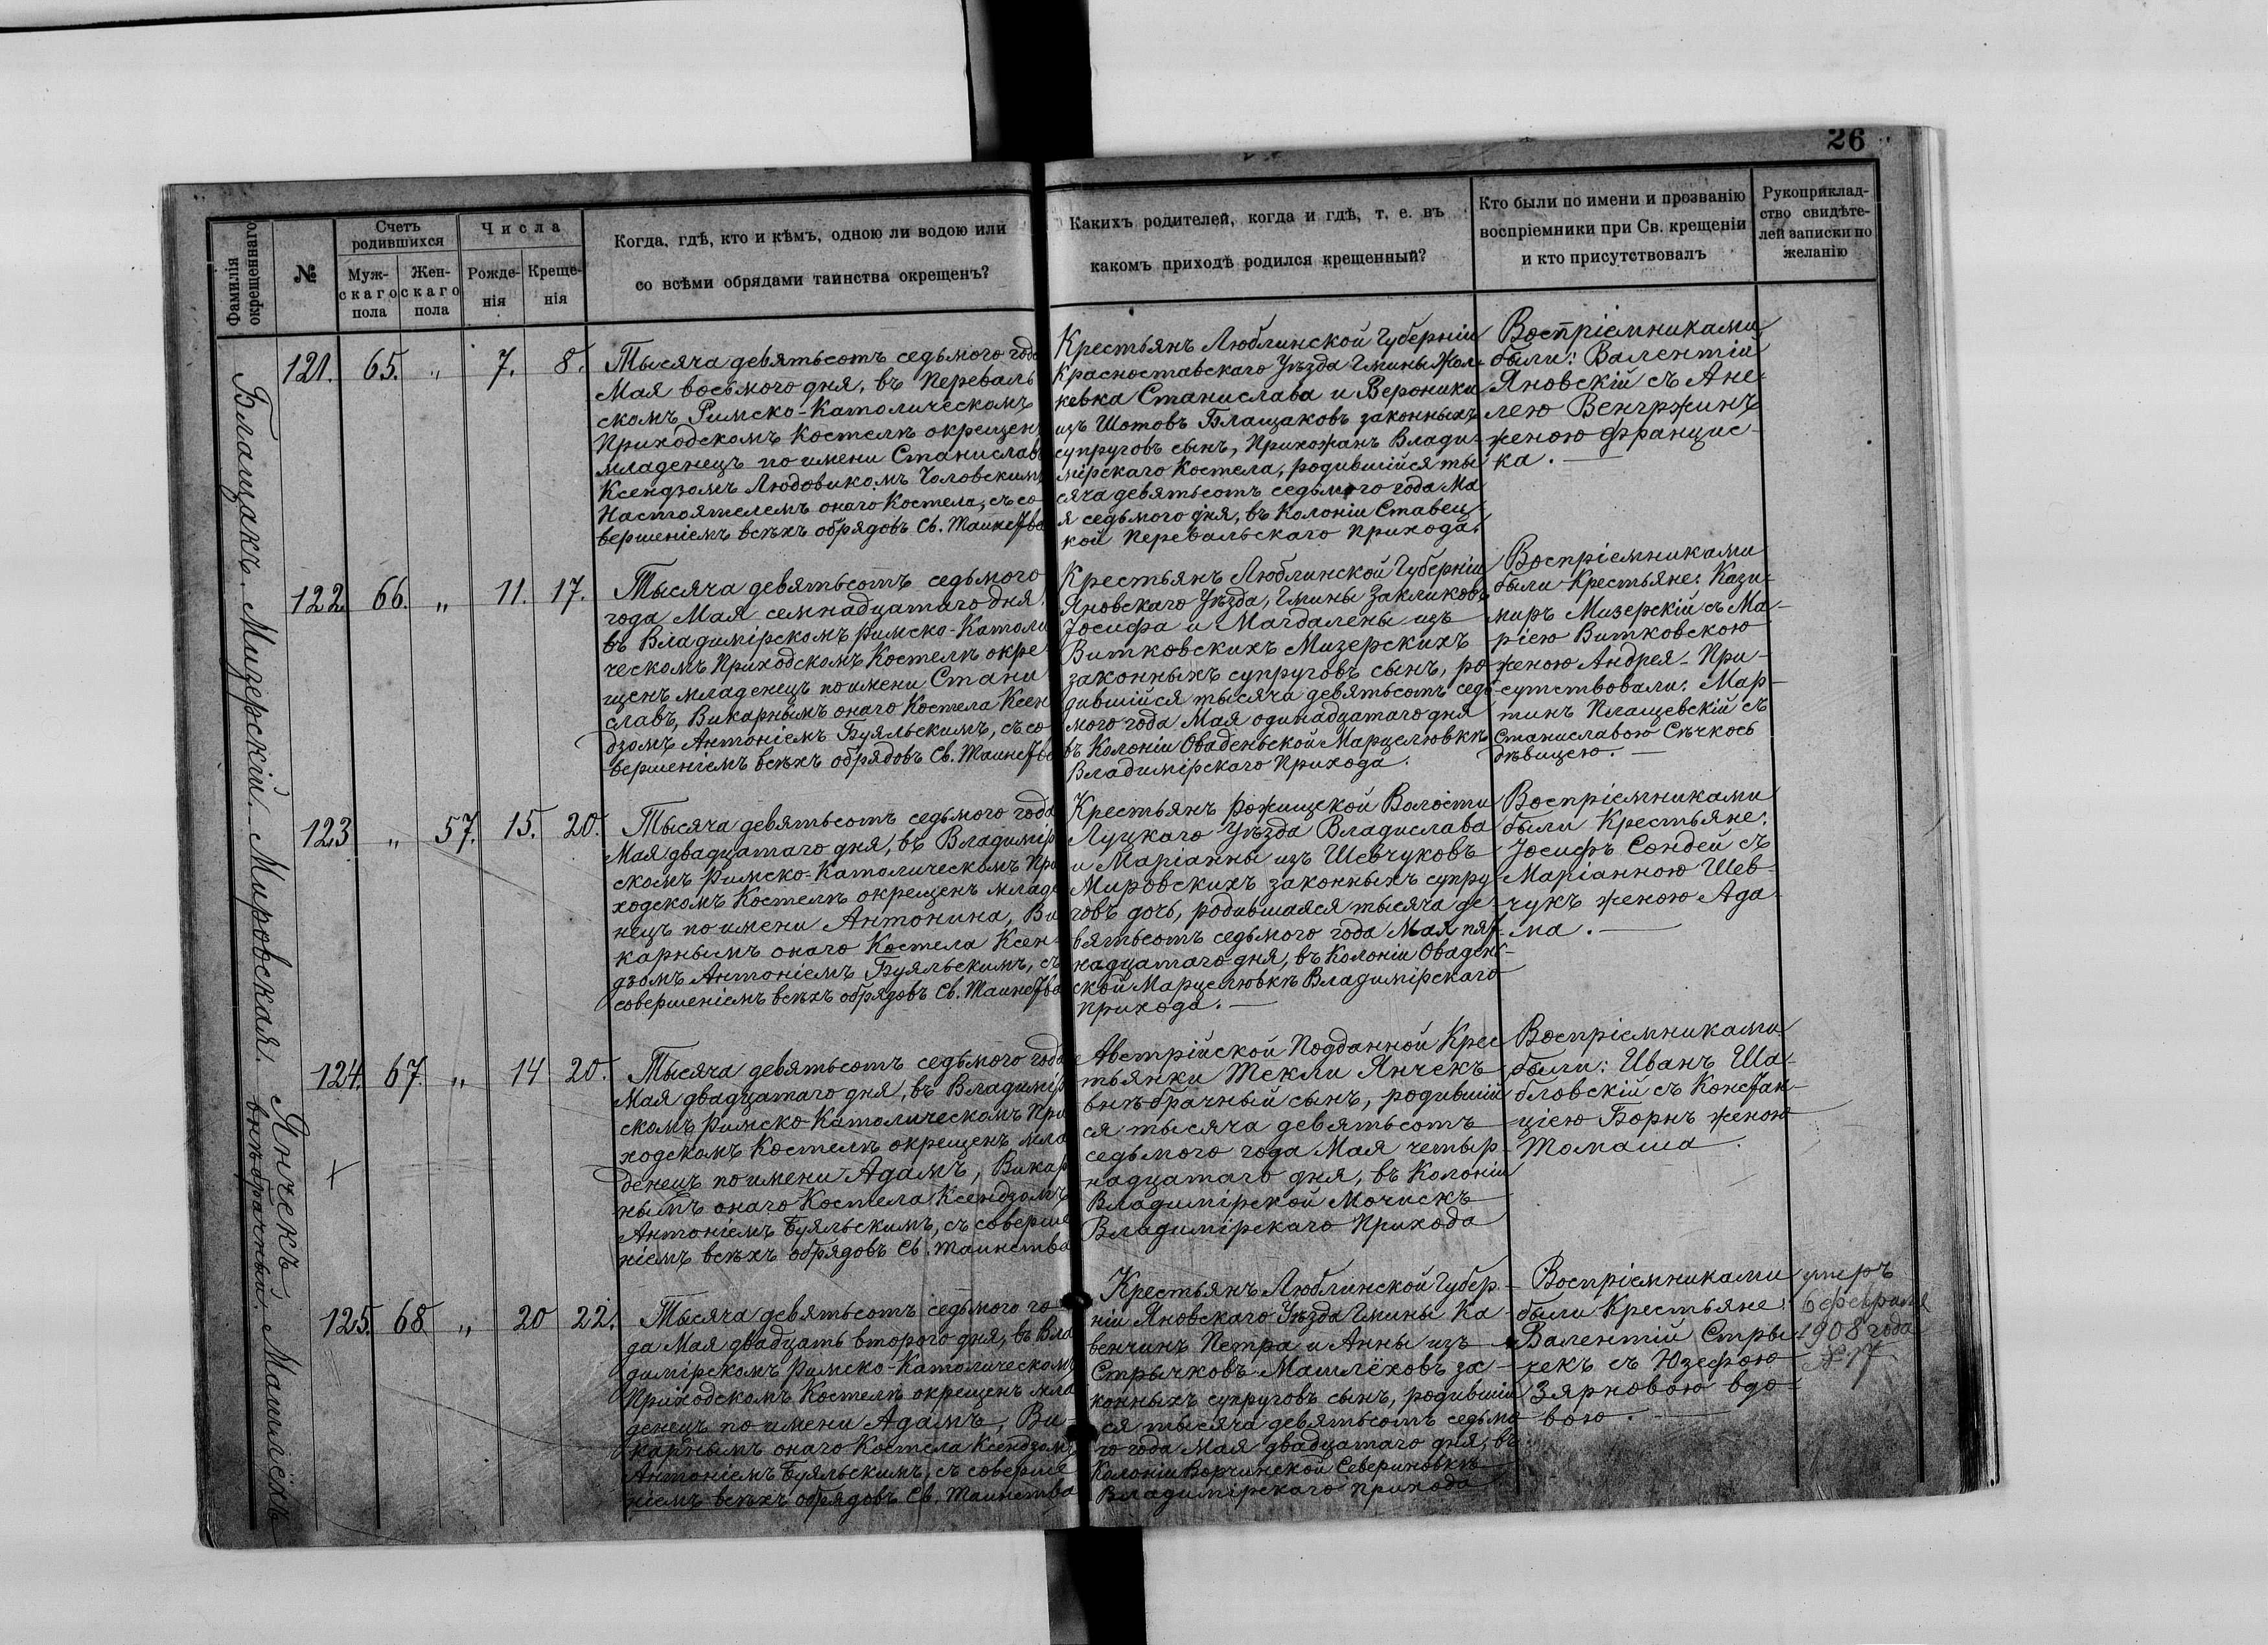 26
Фамилія
окрещеннаго
№
Счетъ
родившихся
Муж-
скаго
пола
Жен-
скаго
пола
Числа
Рожде-
нія
Креще-
нія
Когда, гдѣ, кто и кѣмъ, одною ли водою или
со всѣми обрядами таинства окрещенъ?
Какихъ родителей, когда и гдѣ, т. е. въ
какомъ приходѣ родился крещенный?
Кто были по имени и прозванію
воспріемники при Св. крещеніи
и кто присутствовалъ
Рукоприклад-
ство свидѣте-
лей записки по
желанію
Блащакъ.
121. 65. „ 7. 8.
Тысяча девятьсотъ седьмого года
Мая восьмого дня, въ Переваль
скомъ Римско-Католическомъ
Приходскомъ Костелѣ окрещенъ
младенецъ по имени Станиславъ
Ксендзомъ Людовикомъ Чоловскимъ
Настоятелемъ онаго Костела, съ со
вершеніемъ всѣхъ обрядовъ Св. Таинства
Крестьянъ Люблинской Губерніи
Красноставскаго Уѣзда Гмины Жол-
кевка Станислава и Вероники
изъ Шотовъ Блащаковъ законныхъ
супруговъ сынъ, Прихожанъ Влади-
мірскаго Костела, родившійся ты
сяча девятьсотъ седьмого года Ма
я седьмого дня, въ Колоніи Ставец-
кой Перевальскаго Прихода.
Воспріемниками
были: Валентій
Яновскій съ Ане-
лею Венгржинъ
женою Францис-
ка.
Мизерскій.
122 66. „ 11. 17.
Тысяча девятьсотъ седьмого
года Мая семнадцатаго дня
въ Владимірскомъ Римско-Католи
ческомъ Приходскомъ Костелѣ окре
щенъ младенецъ по имени Стани
славъ, Викарнымъ онаго Костела Ксен
дзомъ Антоніемъ Буяльскимъ, съ со
вершеніемъ всѣхъ обрядовъ Св. Таинства
Крестьянъ Люблинской Губерніи
Яновскаго Уѣзда, Гмины Закликовъ
Іосифа и Магдалены изъ
Витковскихъ Мизерскихъ
законныхъ супруговъ сынъ, ро
дившійся тысяча девятьсотъ седь
мого года Мая одинадцатаго дня
въ Колоніи Оваденьской Марцелювкѣ
Владимірскаго Прихода.
Воспріемниками
были Крестьяне: Кази-
миръ Мизерскій съ Ма-
ріею Витковскою
женою Андрея - При-
сутствовали: Мар-
тинъ Плащевскій съ
Станиславою Сѣчкось
дѣвицею.
Мировская.
123 „ 57. 15. 20.
Тысяча девятьсотъ седьмого года
Мая двадцатаго дня, въ Владимір
скомъ Римско-Католическомъ При
ходскомъ Костелѣ окрещенъ младе
нецъ по имени Антонина, Ви
карнымъ онаго Костела Ксен-
дзомъ Антоніемъ Буяльскимъ, съ
совершеніемъ всѣхъ обрядовъ Св. Таинства
Крестьянъ Рожищской Волости
Луцкаго Уѣзда Владислава
и Маріанны изъ Шевчуковъ
Мировскихъ законныхъ супру
говъ дочь, родившаяся тысяча де-
вятьсотъ седьмого года Мая пят-
надцатаго дня, въ Колоніи Оваден-
ской Марцелювкѣ Владимірскаго
Прихода.
Воспріемниками
были Крестьяне:
Іосифъ Сондей съ
Маріанною Шев-
чукъ женою Ада-
ма.
Янчекъ
внѣбрачный.
124. 67. „ 14 20.
Тысяча девятьсотъ седьмого года
Мая двадцатаго дня, въ Владимір
скомъ Римско-Католическомъ При
ходскомъ Костелѣ окрещенъ мла
денецъ по имени Адамъ, Викар
нымъ онаго Костела Ксендзомъ
Антоніемъ Буяльскимъ, съ соверше
ніемъ всѣхъ обрядовъ Св. Таинства
Австрійской Подданной Крес
тьянки Текли Янчекъ
внѣбрачный сынъ, родившій
ся тысяча девятьсотъ
седьмого года Мая четыр-
надцатаго дня, въ Колоніи
Владимірской Мочискъ
Владимірскаго Прихода
Воспріемниками
были: Иванъ Ша-
бловскій съ Констан-
ціею Борнъ женою
Томаша.
Машлёхъ
125. 68. „ 20 22.
Тысяча девятьсотъ седьмого го-
да Мая двадцать второго дня, въ Вла
димірскомъ Римско-Католическомъ
Приходскомъ Костелѣ окрещенъ мла
денецъ по имени Адамъ, Ви-
карнымъ онаго Костела Ксендзомъ
Антоніемъ Буяльскимъ, съ соверше
ніемъ всѣхъ обрядовъ Св. Таинства
Крестьянъ Люблинской Губер-
ніи Яновскаго Уѣзда Гмины Ка-
венчинъ Петра и Анны изъ
Стрычковъ Машлёховъ за-
конныхъ супруговъ сынъ, родившій
ся тысяча девятьсотъ седьмо
го года Мая двадцатаго дня, въ
Колоніи Ворчинской Севериновкѣ
Владимірскаго Прихода
Воспріемниками
были Крестьяне:
Валентій Стры-
чекъ съ Юзефою
Зярновою вдо-
вою.
умеръ
6 февраля
1908 года
№ 17